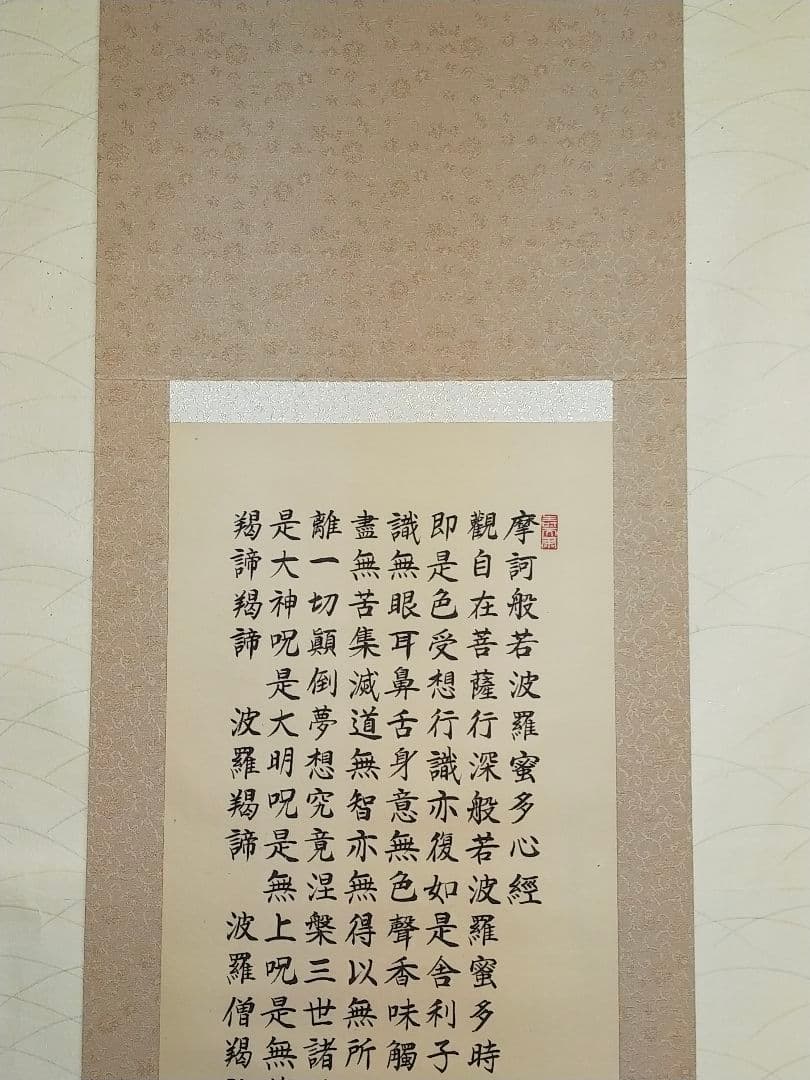 摩訶般若波羅蜜多心經
觀自在菩薩行深般若波羅蜜多時
即是色受想行識亦復如是舎利子
識無眼耳鼻舌身意無色聲香味觸
盡無苦集滅道無智亦無得以無所
離一切顛倒夢想究竟涅槃三世諸
是大神呪是大明呪是無上呪是無
羯諦羯諦 波羅羯諦 波羅僧羯